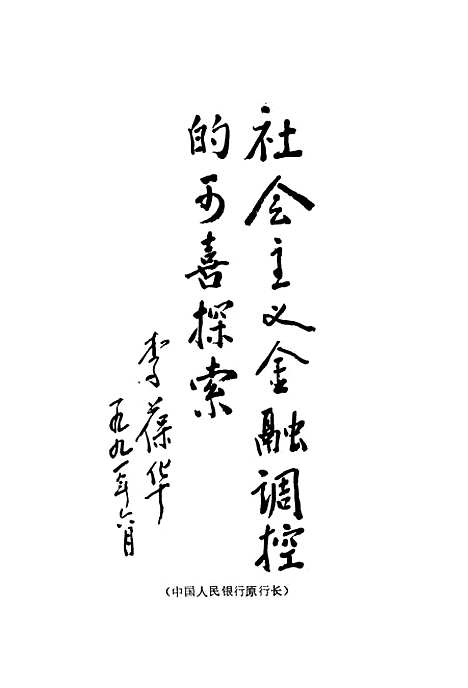 社会主义金融调控
的可喜探索
李葆华
一九九一年六月
（中国人民银行原行长）